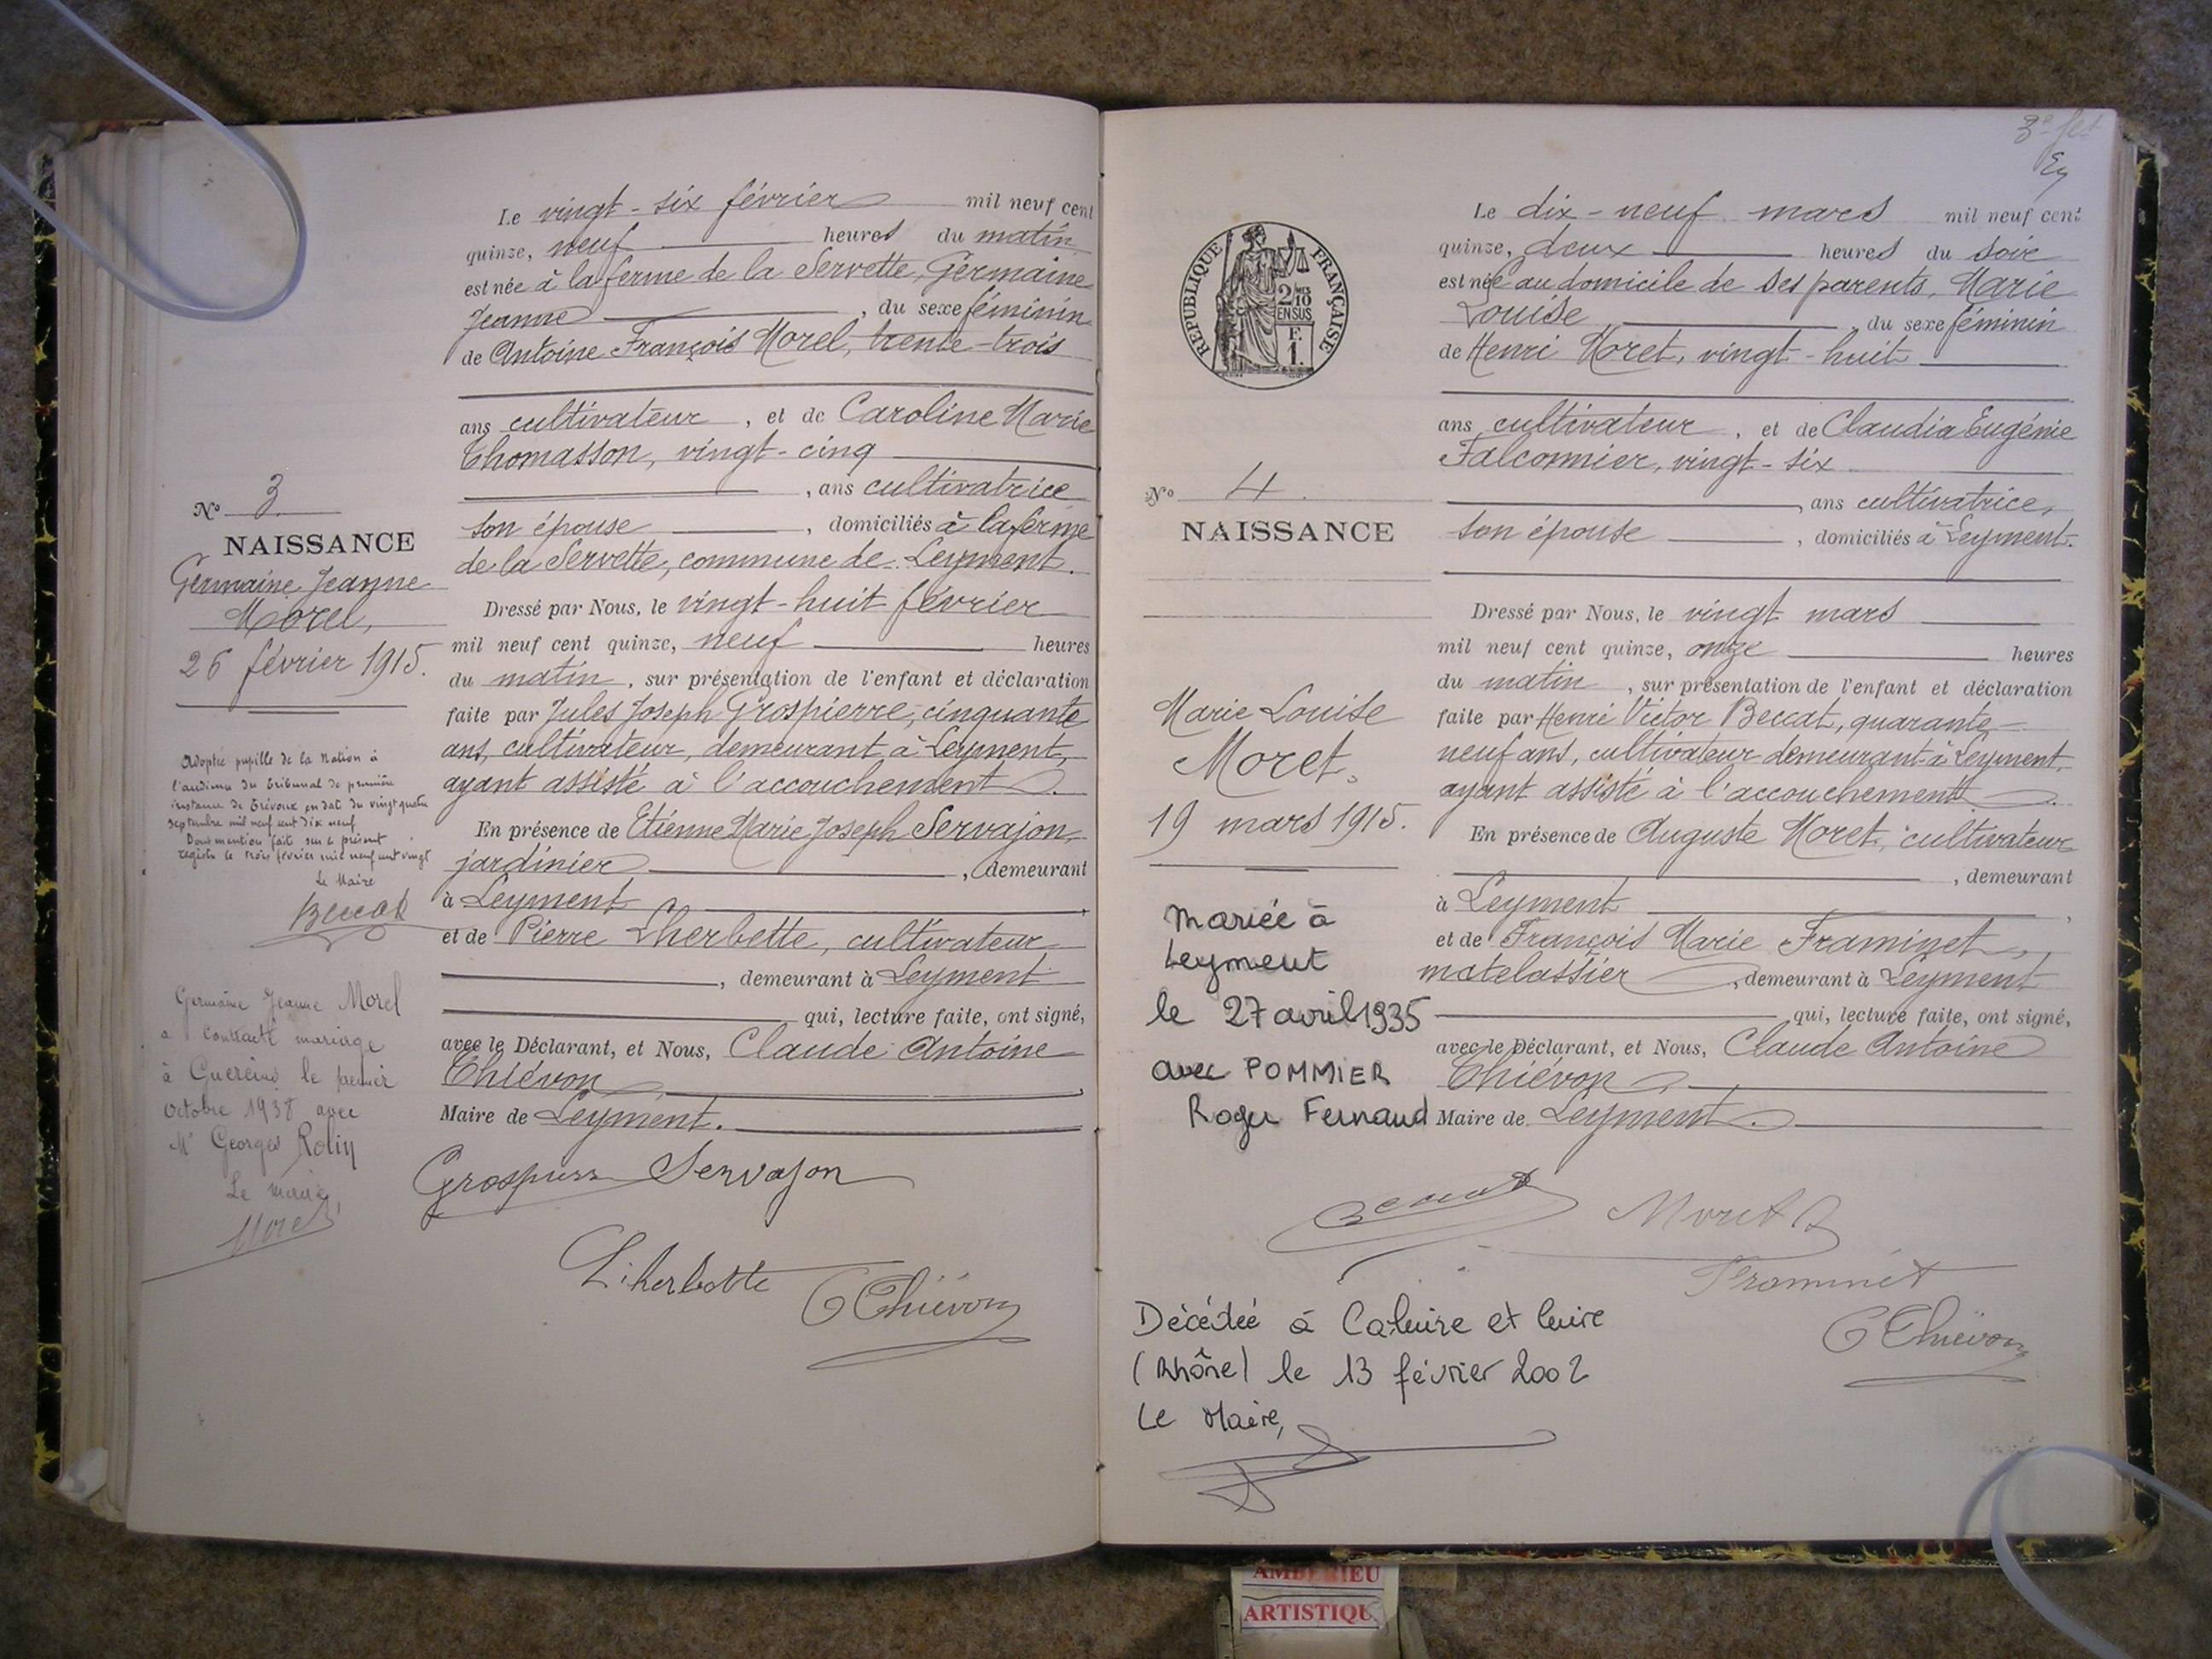 Le vingt-six février mil neuf cent
quinze, neuf heures du matin
est née à la ferme de la Servette, Germaine
Jeanne, du sexe féminin
de Antoine François Morel, trente-trois
ans cultivateur, et de Caroline Marie
Thomasson, vingt-cinq
, ans cultivatrice
son épouse, domiciliés à la ferme
de la Servette, commune de Leyment.
Dressé par Nous, le vingt-huit février
mil neuf cent quinze, neuf heures
du matin, sur présentation de l'enfant et déclaration
faite par Jules Joseph Grospierre, cinquante
ans, cultivateur, demeurant à Leyment,
ayant assisté à l'accouchement.
En présence de Etienne Marie Joseph Servajon,
jardinier, demeurant
à Leyment,
et de Pierre Lherbette, cultivateur
, demeurant à Leyment
qui, lecture faite, ont signé,
avec le Déclarant, et Nous, Claude Antoine
Thiévon,
Maire de Leyment.
Servajon
Lherbette
CThiévon
No 3
NAISSANCE
Germaine Jeanne
Morel,
26 février 1915.
Adoptée pupille de la Nation à
l'audience du tribunal de première
instance de Trévoux en date du vingt quatre
septembre mil neuf cent dix neuf
Dont mention faite sur le présent
registre le trois février mil neuf cent vingt
Le Maire
Beccat
Germaine Jeanne Morel
a contracté mariage
à Guereins le premier
octobre 1938 avec
Mr Georges Rolin
Le maire,
REPUBLIQUE FRANÇAISE
2 10
EN SUS
F.
1.
Le dix-neuf mars mil neuf cent
quinze, deux heures du soir
est née au domicile de ses parents, Marie
Louise, du sexe féminin
de Henri Moret, vingt-huit
ans cultivateur, et de Claudia Eugénie
Falconnier, vingt-six
, ans cultivatrice,
son épouse, domiciliés à Leyment.
Dressé par Nous, le vingt mars
mil neuf cent quinze, onze heures
du matin, sur présentation de l'enfant et déclaration
faite par Henri Victor Beccat, quarante-
neuf ans, cultivateur demeurant à Leyment,
ayant assisté à l'accouchement.
En présence de Auguste Moret, cultivateur
, demeurant
à Leyment,
et de François Marie Framinet,
matelassier, demeurant à Leyment
qui, lecture faite, ont signé,
avec le Déclarant, et Nous, Claude Antoine
Thiévon
Maire de Leyment.
Beccat
Moret
Framinet
CThiévon
No 4
NAISSANCE
Marie Louise
Moret.
19 mars 1915.
Mariée à
Leyment
le 27 avril 1935
avec POMMIER
Roger Fernand
Décédée à Caluire et Cuire
(Rhône) le 13 février 2002
Le Maire,
AMBERIEU
ARTISTIQU